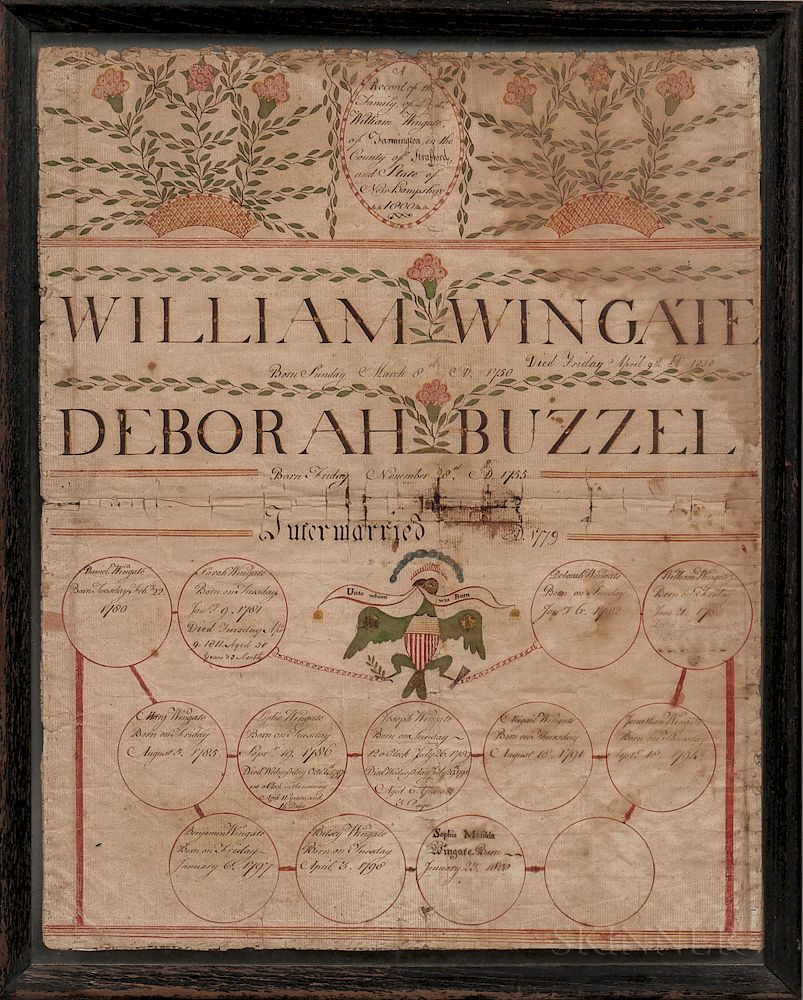 A
Record of the
Family of
William Wingate
of Farmington, in the
County of Strafford,
and State of
New Hampshire
1800
WILLIAM WINGATE
Born Sunday March 8th AD. 1750 Died Friday April 9th
DEBORAH BUZZEL
Born Friday November 28th AD. 1755
Intermarried AD. 1779
Unto whom was Born
Daniel Wingate
Born Tuesday Feb. 22
1780
Sarah Wingate
Born on Tuesday
1781
Died Tuesday Apr
9. 1811 Aged 30
Years & 3 Months
Deborah Wingate
Born on Sunday
6. 1782
William Wingate
Born on
21.
Mary Wingate
Born on Friday
August 5. 1785
Lydia Wingate
Born on Tuesday
Sept. 19. 1786
Died Wednesday Octr.
one oClock in the morning
Aged 11 Years and
Days
Joseph Wingate
Born on Sunday
12 oClock July 26. 1789
Died Wednesday July
Aged 6 Years &
3 Days
Abigail Wingate
Born on Thursday
August 18. 1791
Jonathan Wingate
Born on
Sept. 18. 1794
Benjamin Wingate
Born on Friday
January 6. 1797
Betsey Wingate
Born on Tuesday
April. 3. 1798
Sophia Matilda
Wingate Born
January 23. 1800
SKINNER